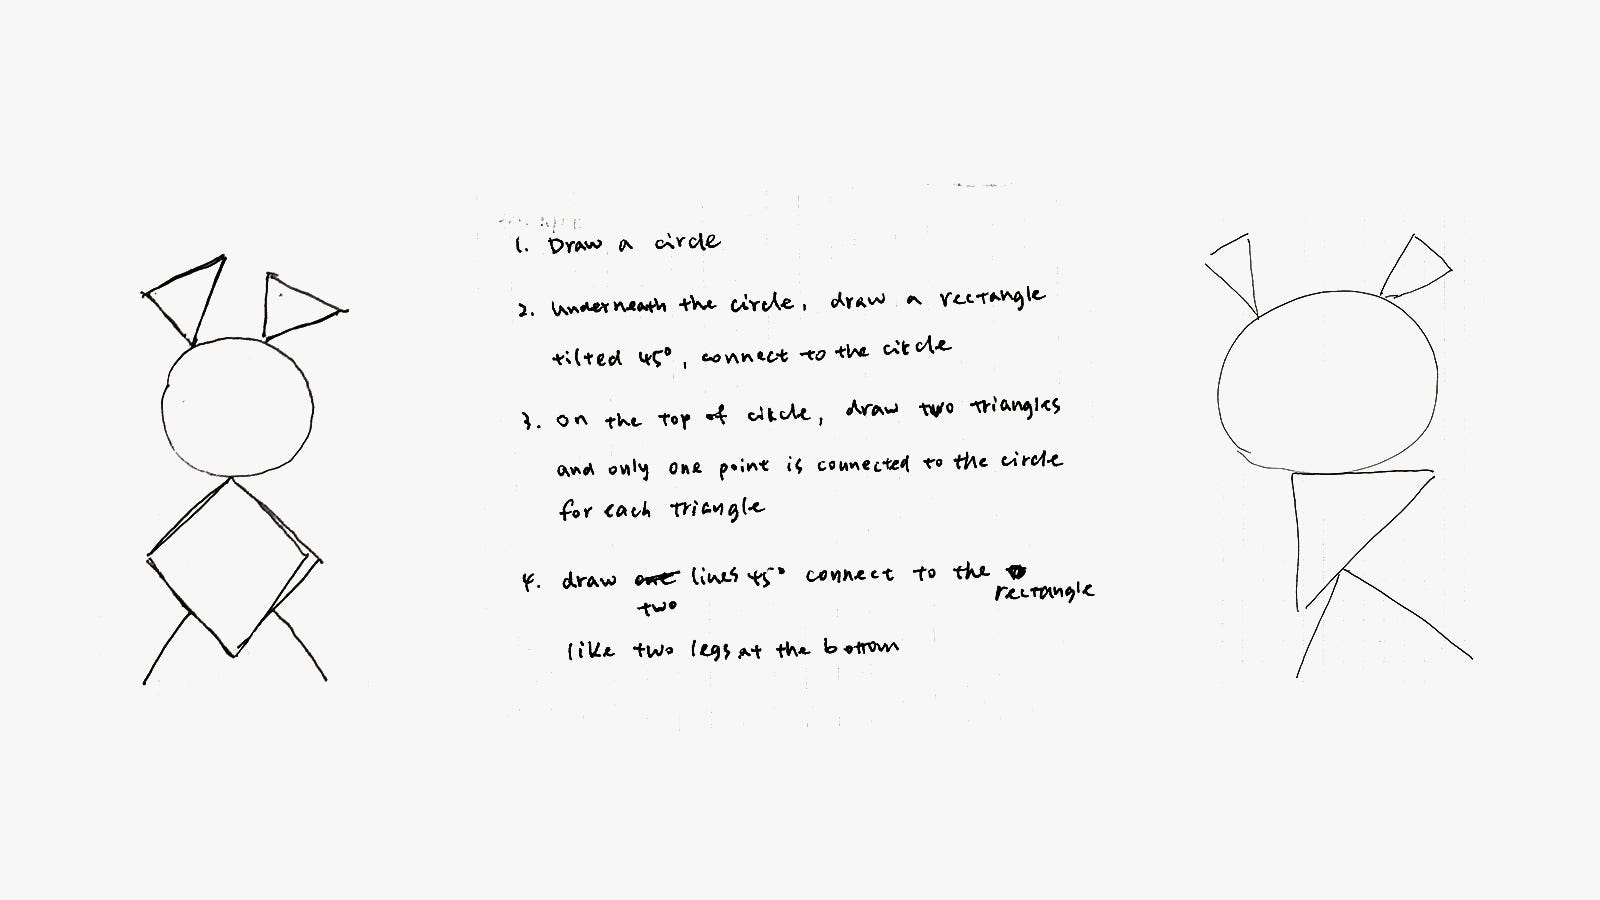 1. Draw a circle
2. Underneath the circle, draw a rectangle
tilted 45°, connect to the circle
3. On the top of circle, draw two triangles
and only one point is connected to the circle
for each triangle
4. draw one lines 45° connect to the rectangle
two
like two legs at the bottom